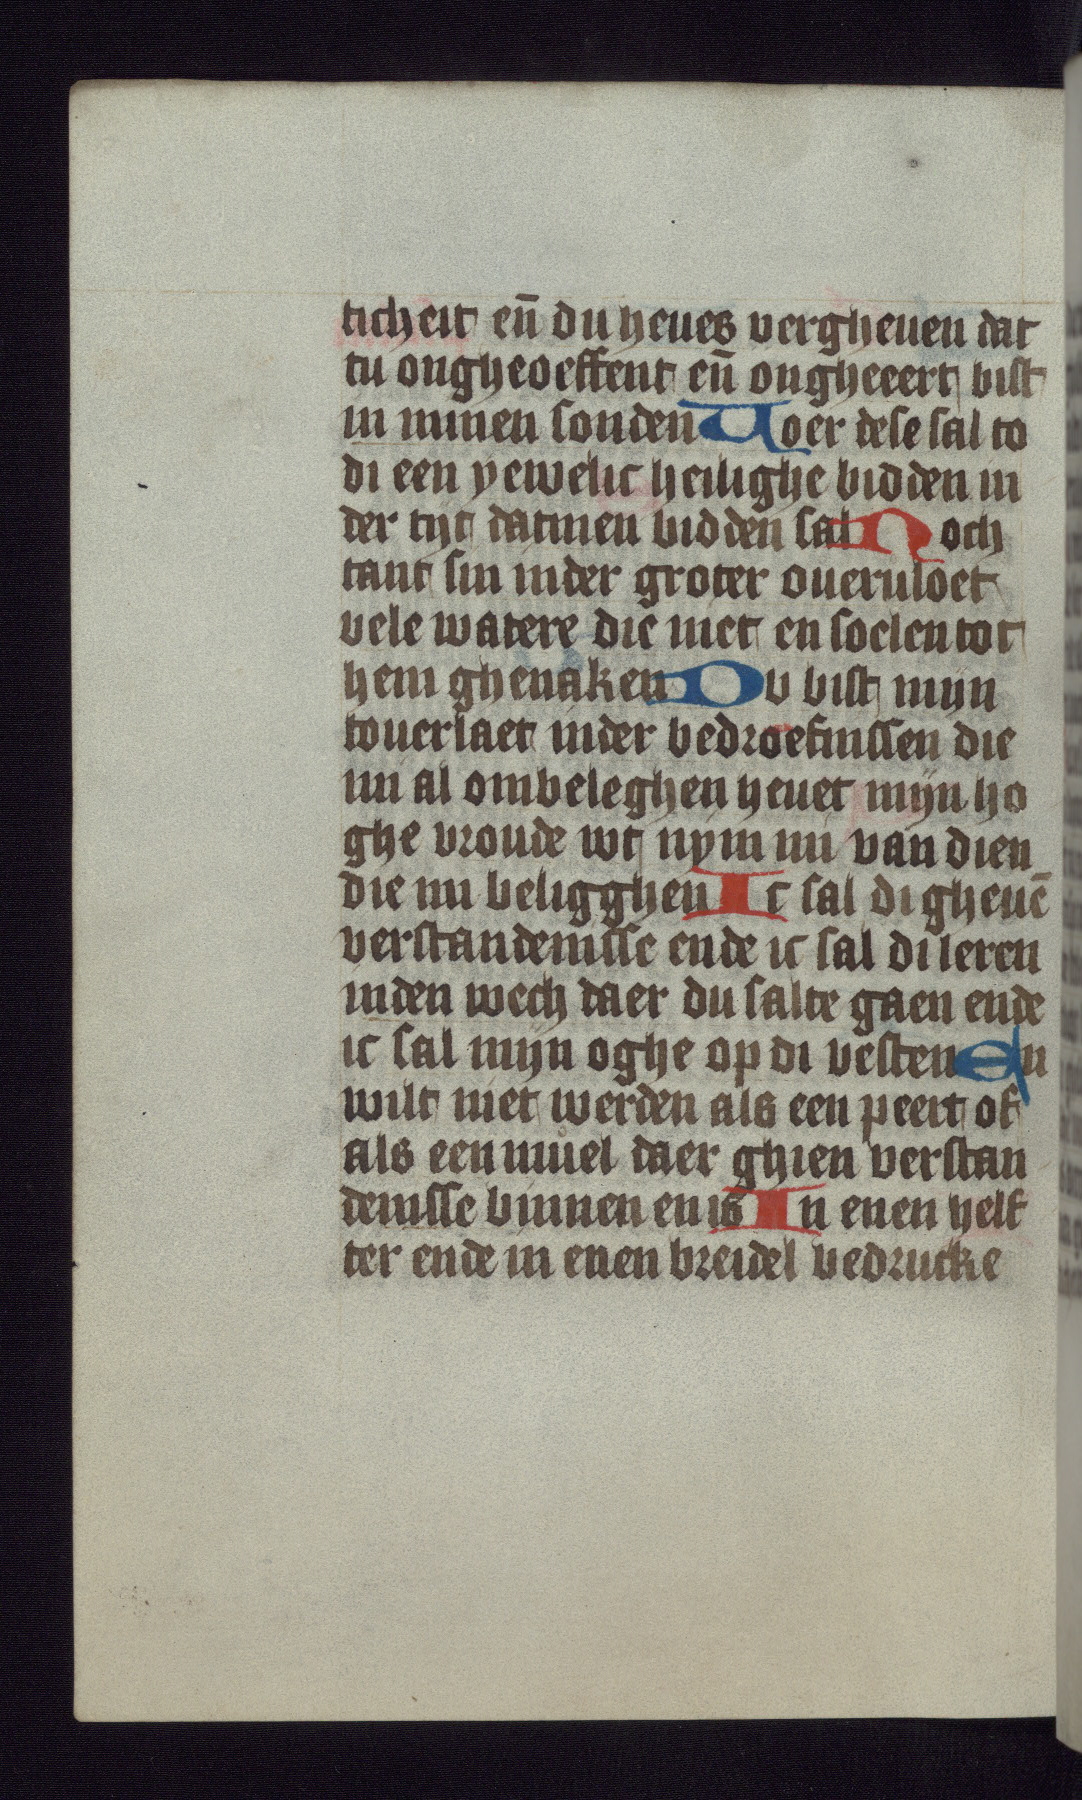 ticheit en̄ du heues vergheuen dat
tu ongheoeffent en̄ ongheeert bist
in minen sonden Voer dese sal to
di een yewelic heilighe bidden in
der tijt datmen bidden sal Noch
tant sin inder groter oueruloet
vele watere die niet en soelen tot
hem ghenaken Du bist mijn
touerlaet inder bedroefinssen die
mi al ombeleghen heuet mijn ho
ghe vroude wt nym mi van dien
die mi beligghen Ic sal di gheuē
verstandenisse ende ic sal di leren
inden wech daer du salte gaen ende
ic sal mijn oghe op di vesten En
wilt niet werden als een peert of
als een muel daer ghien verstan
denisse binnen en is In enen helf
ter ende in enen breidel bedrucke